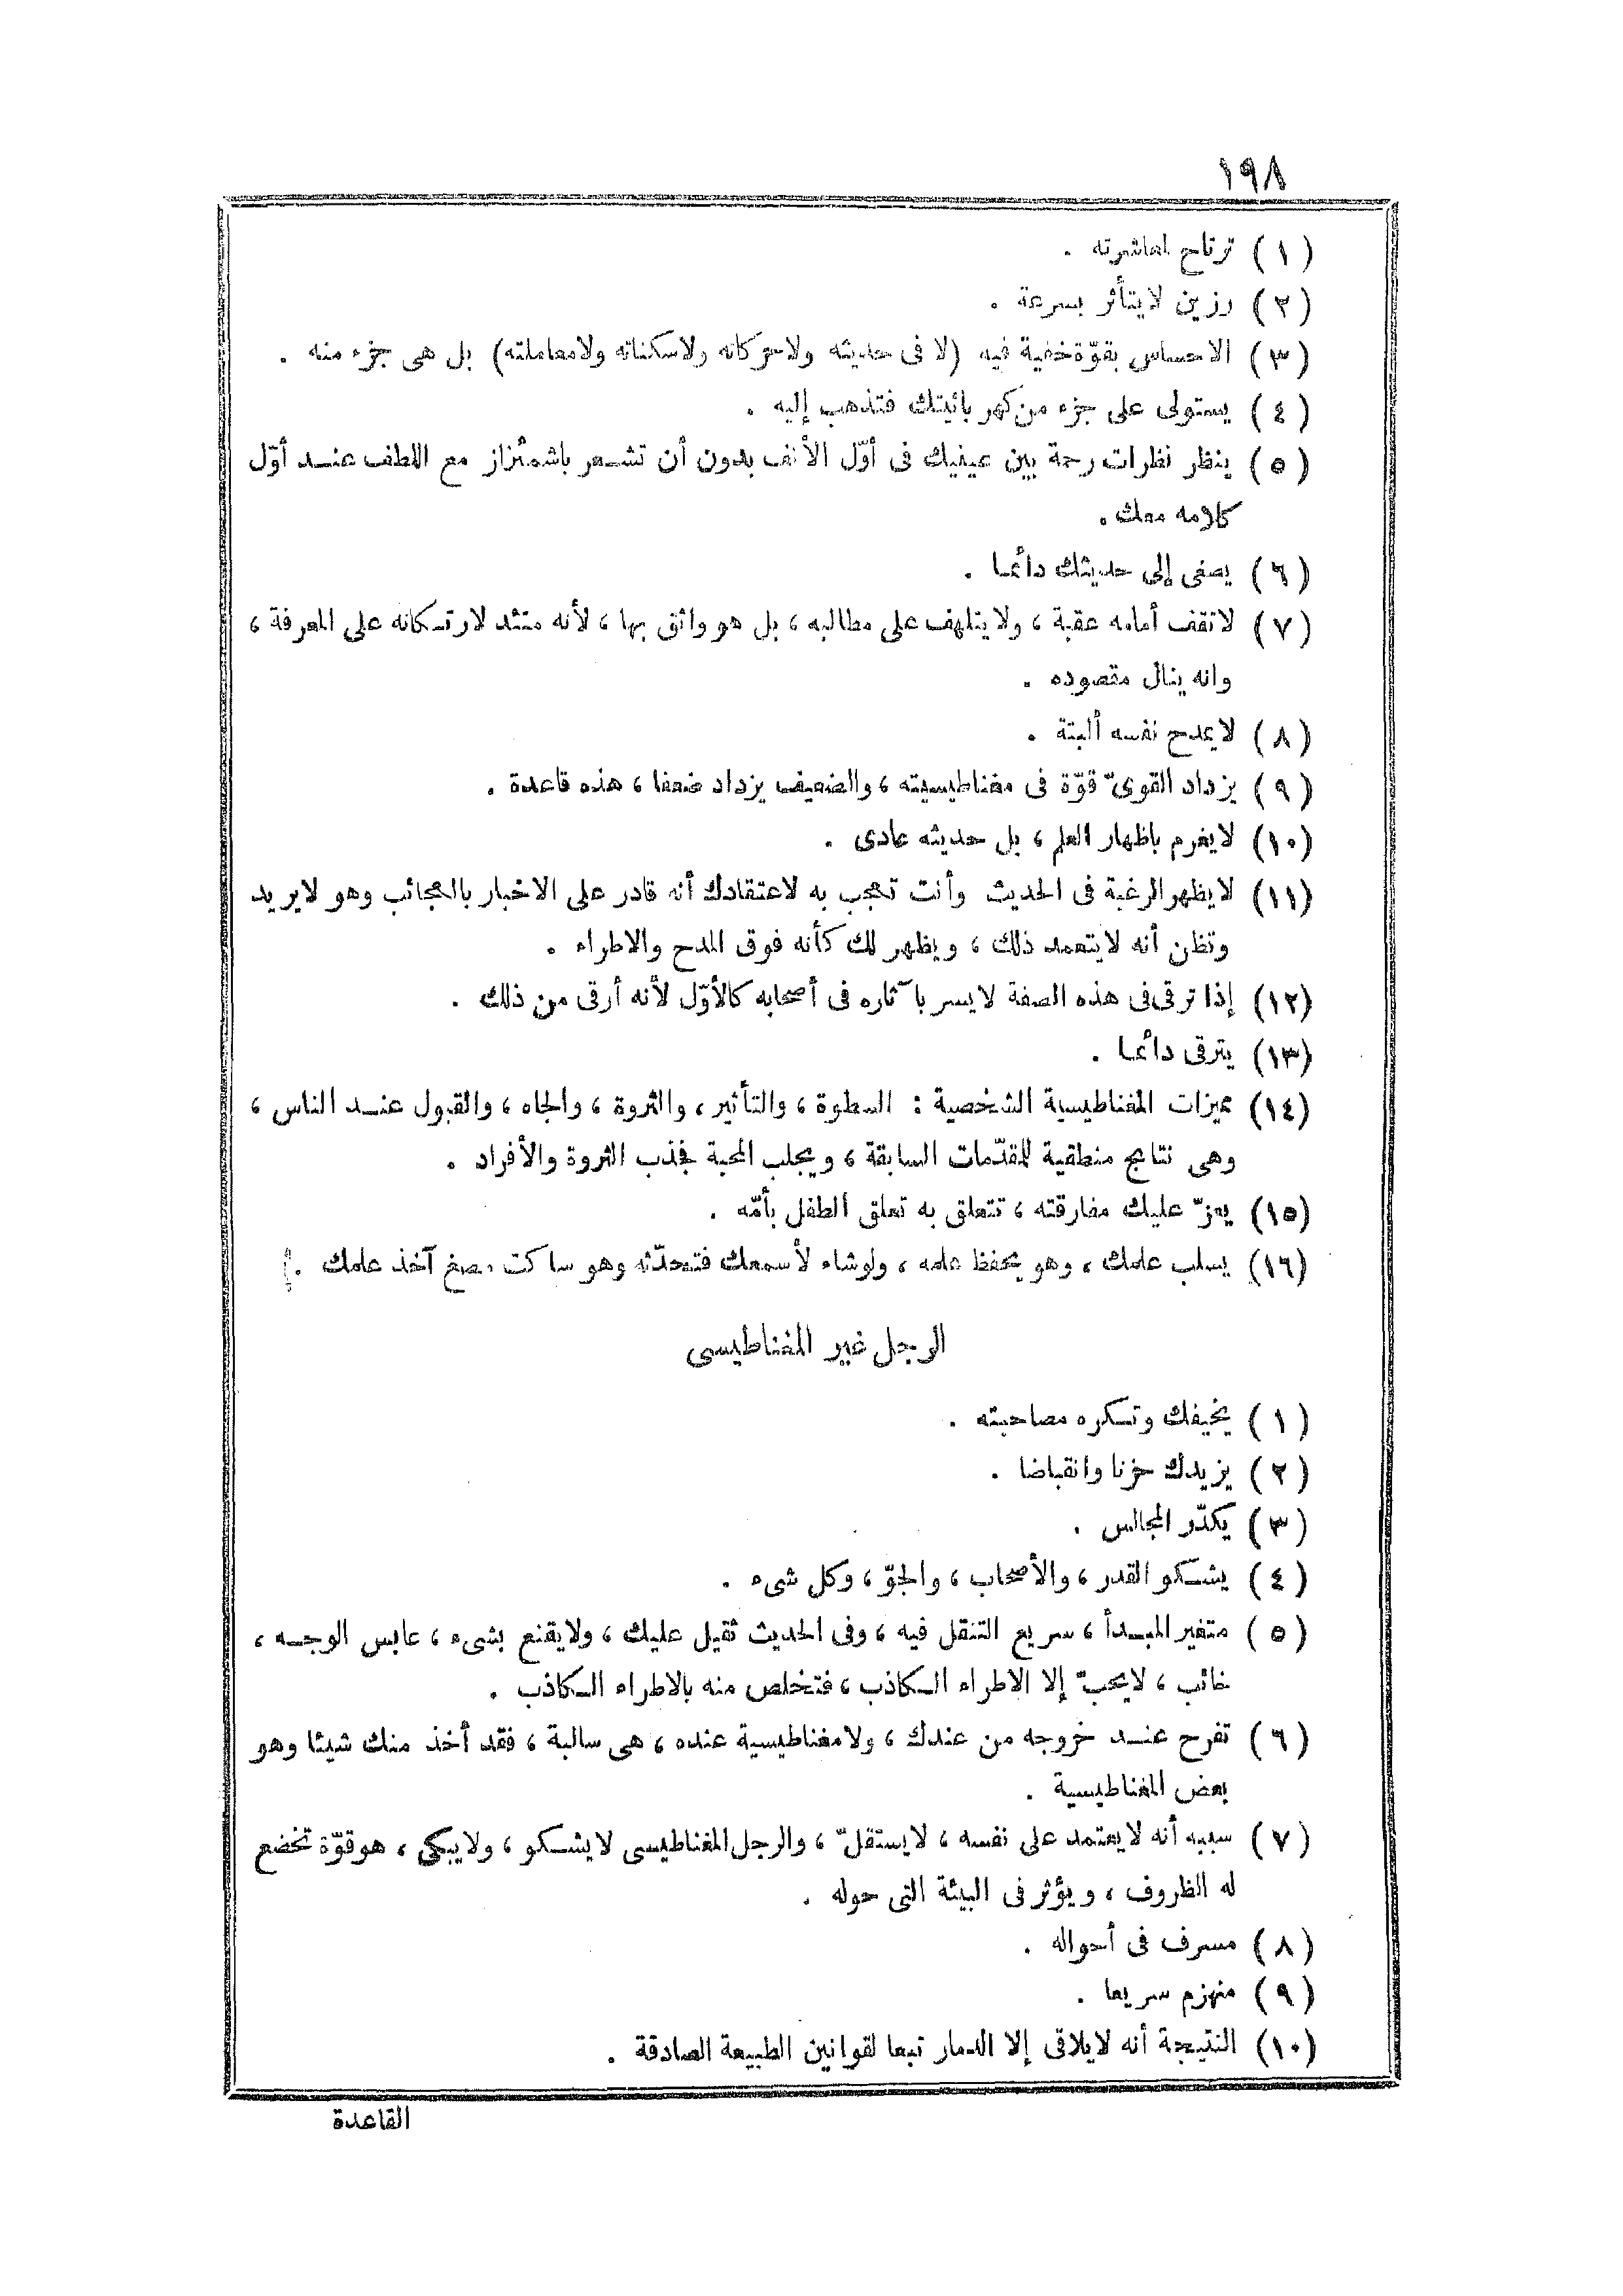 ١٩٨
(١) ترتاح لمعاشرته .
(٢) رزين لايتأثر بسرعة .
(٣) الاحساس بقوّة خفية فيه (لا فى حديثه ولاحركاته ولاسكناته ولامعاملته) بل هى جزء منه .
(٤) يستولى على جزء من كهربائيتك فتذهب إليه .
(٥) ينظر نظرات رحمة بين عينيك فى أوّل الأنف بدون أن تشعر باشمئزاز مع اللطف عند أوّل
كلامه معك .
(٦) يصغى إلى حديثك دائما .
(٧) لاتقف أمامه عقبة ، ولايتلهف على مطالبه ، بل هو واثق بها ، لأنه متئد لارتكانه على المعرفة ،
وانه ينال مقصوده .
(٨) لايمدح نفسه ألبتة .
(٩) يزداد القوىّ قوّة فى مغناطيسيته ، والضعيف يزداد ضعفا ، هذه قاعدة .
(١٠) لايغرم باظهار العلم ، بل حديثه عادى .
(١١) لايظهر الرغبة فى الحديث وأنت تعجب به لاعتقادك أنه قادر على الاخبار بالعجائب وهو لايريد
وتظن أنه لايتعمد ذلك ، ويظهر لك كأنه فوق المدح والاطراء .
(١٢) إذا ترقى فى هذه الصفة لايسر بآثاره فى أصحابه كالأوّل لأنه أرقى من ذلك .
(١٣) يترقى دائما .
(١٤) مميزات المغناطيسية الشخصية : السطوة ، والتأثير ، والثروة ، والجاه ، والقبول عند الناس ،
وهى نتائج منطقية للمقدّمات السابقة ، ويجلب المحبة فجذب الثروة والأفراد .
(١٥) يعزّ عليك مفارقته ، تتعلق به تعلق الطفل بأمّه .
(١٦) يسلب علمك ، وهو يحفظ علمه ، ولوشاء لأسمعك فتحدّثه وهو ساكت مصغ آخذ علمك .
الرجل غير المغناطيسى
(١) يخيفك وتكره مصاحبته .
(٢) يزيدك حزنا وانقباضا .
(٣) يكدّر المجالس .
(٤) يشكو القدر ، والأصحاب ، والجوّ ، وكل شىء .
(٥) متغير المبدأ ، سريع التنقل فيه ، وفى الحديث ثقيل عليك ، ولايقنع بشىء ، عابس الوجه ،
غائب ، لايحبّ إلا الاطراء الكاذب ، فتخلص منه بالاطراء الكاذب .
(٦) تفرح عند خروجه من عندك ، ولامغناطيسية عنده ، هى سالبة ، فقد أخذ منك شيئا وهو
بعض المغناطيسية .
(٧) سببه أنه لايعتمد على نفسه ، لايستقلّ ، والرجل المغناطيسى لايشكو ، ولايبكى ، هو قوّة تخضع
له الظروف ، ويؤثر فى البيئة التى حوله .
(٨) مسرف فى أحواله .
(٩) منهزم سريعا .
(١٠) النتيجة أنه لايلاقى إلا الدمار تبعا لقوانين الطبيعة الصادقة .
القاعدة